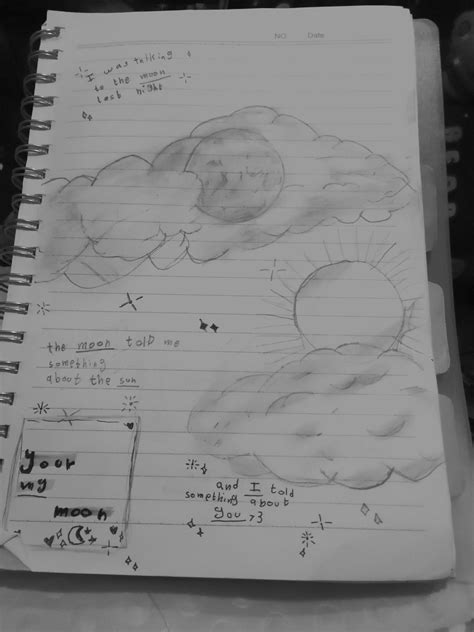 NO
Date
I was talking
to the moon
last night
the moon told me
something
about the sun
your
my
moon
and I told
something about
you >3